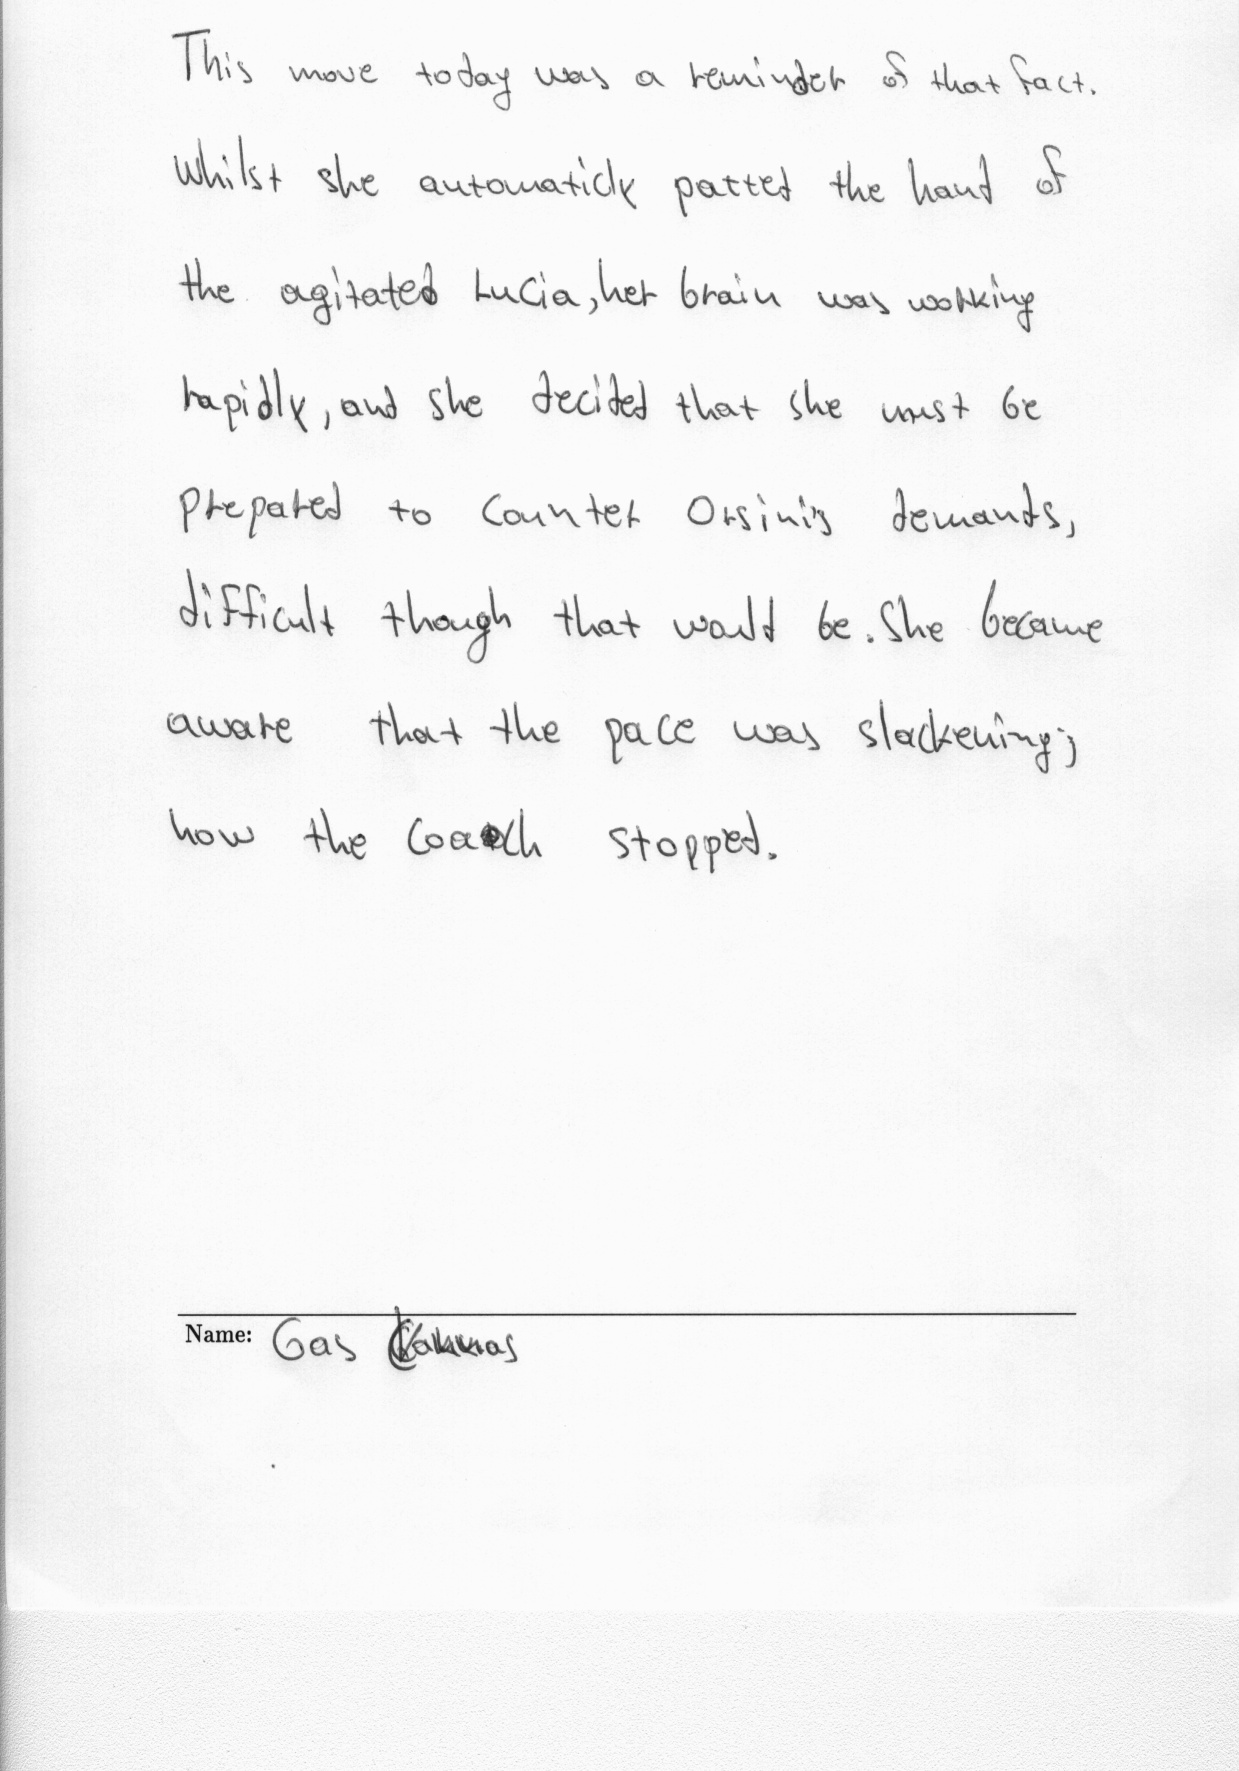 This move today was a reminder of that fact.
Whilst she automaticly patted the hand of
the agitated Lucia, her brain was working
rapidly, and she decided that she must be
prepared to counter Orsini's demands,
difficult though that would be. She became
aware that the pace was slackening;
how the coach stopped.
Name: Gas